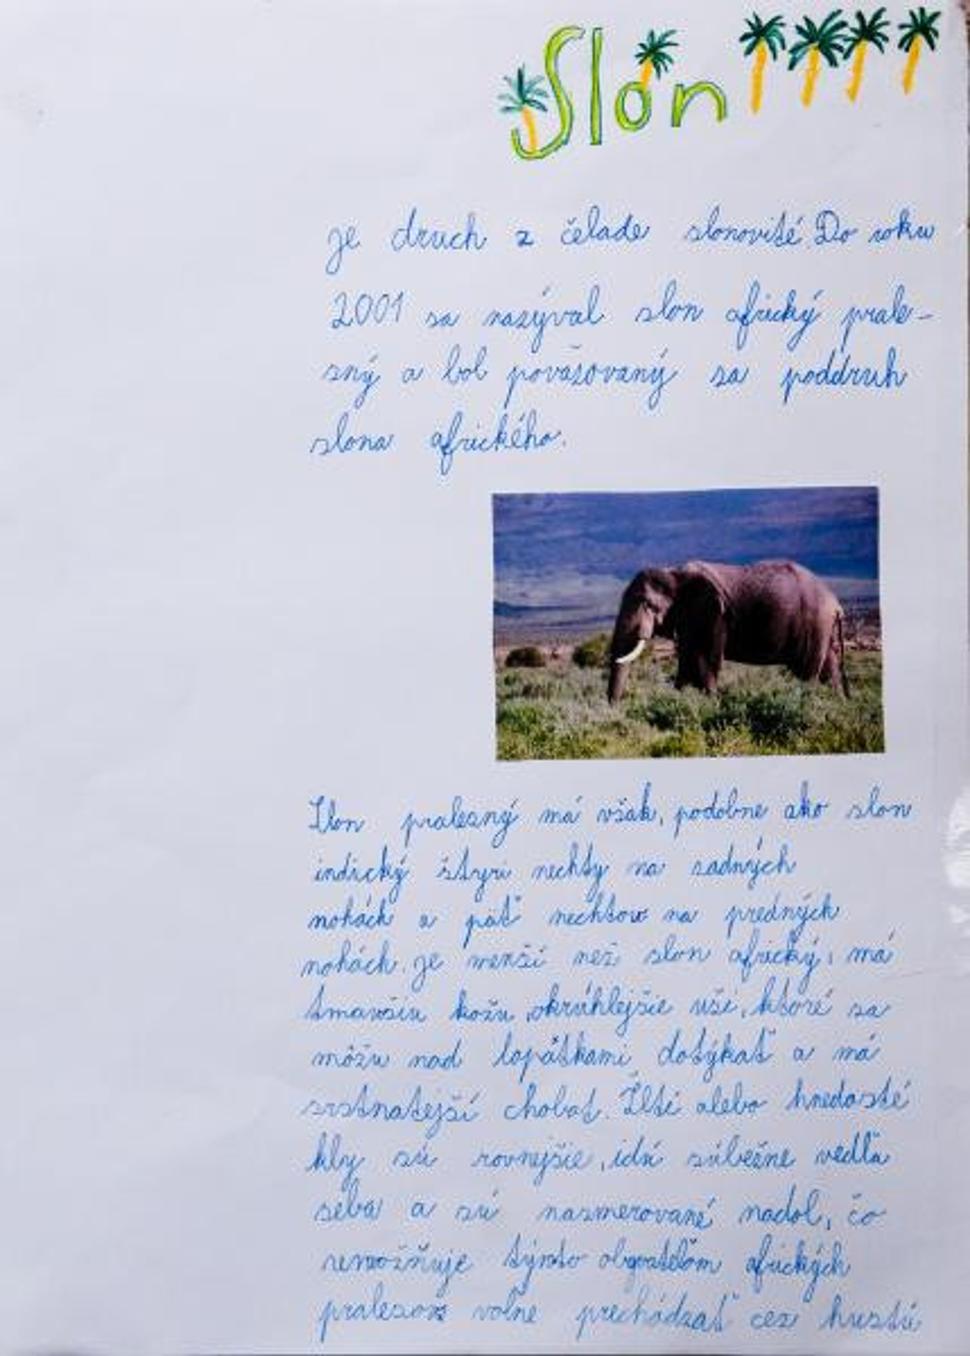 Slon
je druch z čelade slonovité. Do roku
2001 sa nazýval slon africký prale-
sný a bol považovaný za poddruh
slona afrického.
Slon pralesný má však, podobne ako slon
indický štyri nechty na zadných
nohách a päť nechtov na predných
nohách. je menší než slon africký, má
tmavšiu kožu, okrúhlejšie uši, ktoré sa
môžu nad lopatkami dotýkať a má
srstnatejší chobot. Žlté alebo hnedasté
kly sú rovnejšie, idú súbežne vedľa
seba a sú nasmerované nadol, čo
umožňuje týmto obyvateľom afrických
pralesov voľne prechádzať cez hustú